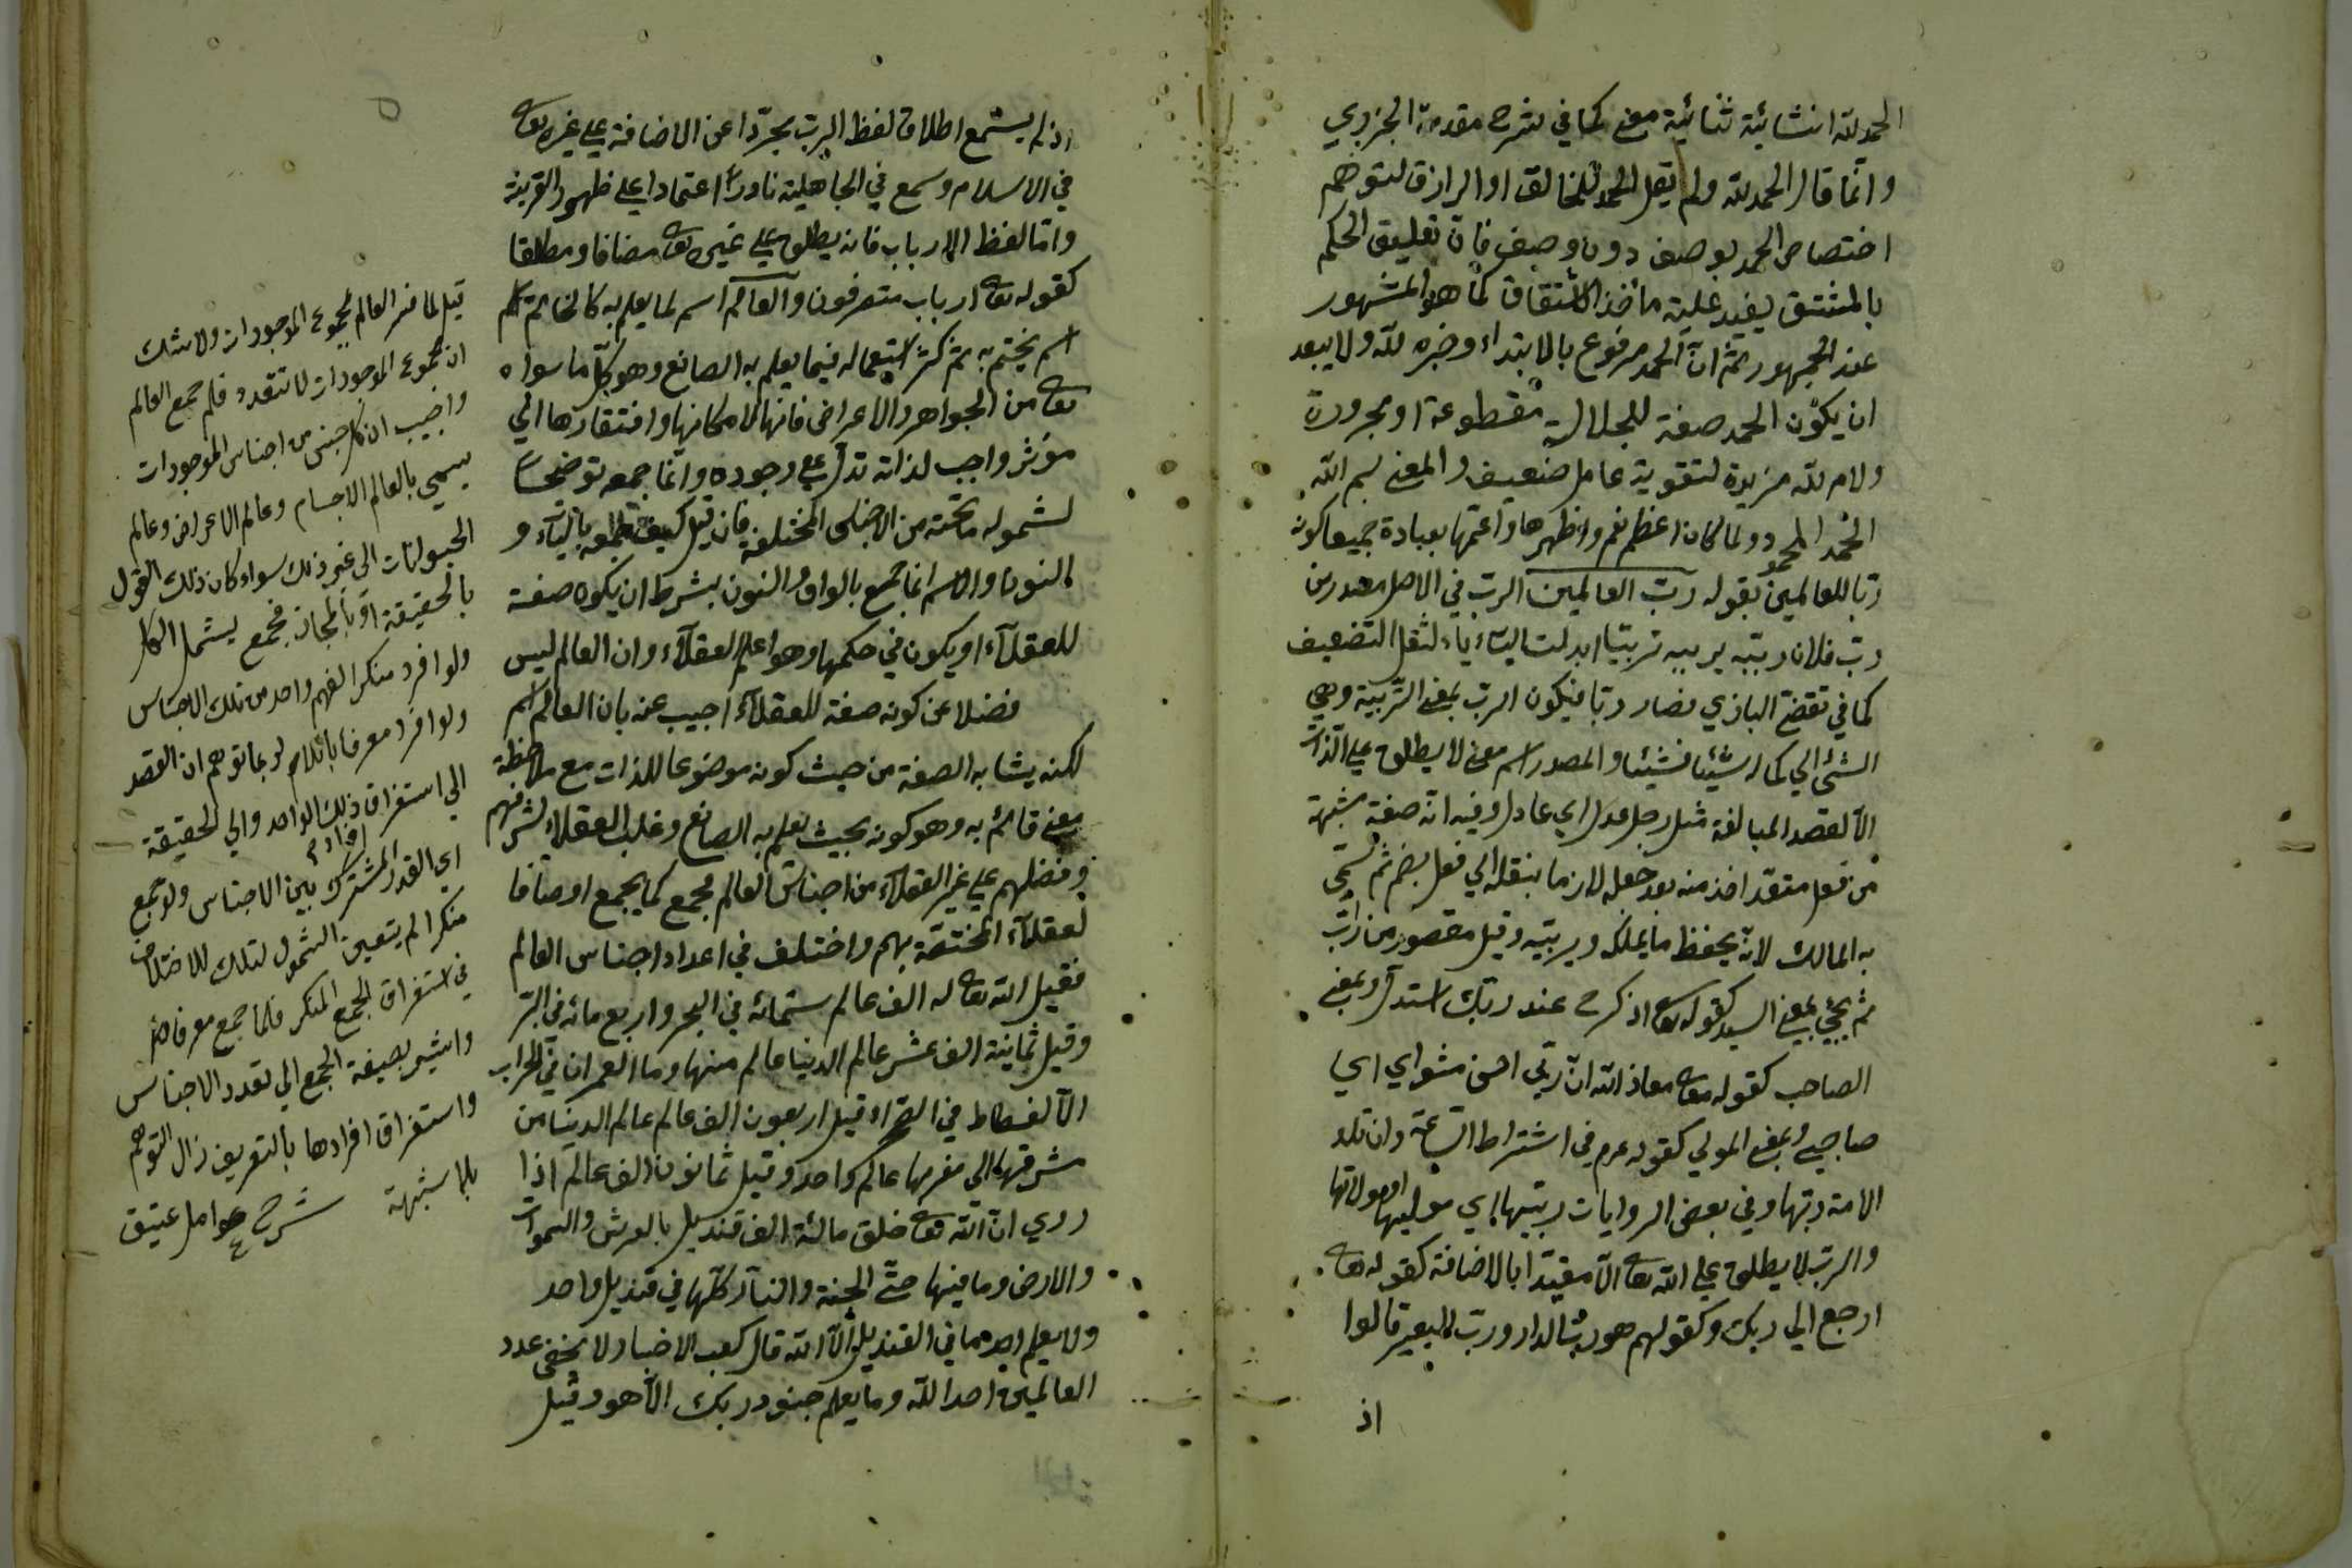 الحمد لله انشائية ثنائية معنى كما في شرح مقدمة الجزري
وانما قال الحمد لله ولم يقل الحمد للخالق او الرازق لتوهم
اختصاص الحمد بوصف دون وصف فان تعليق الحكم
بالمشتق يفيد علية مأخذ الاشتقاق كما هو المشهور
عند الجمهور ثم ان الحمد مرفوع بالابتداء وخبره لله ولا يبعد
ان يكون الحمد صفة للجلالة مقطوعة او مجرورة
ولام لله مزيدة لتقوية عامل ضعيف والمعنى بسم الله
الحمد المحمود ولما كان اعظم نعم واظهرها واعمها بعبادة جميعا كونه
ربا للعالمين بقوله رب العالمين الرب في الاصل مصدر من
رب فلان ربيه يربيه تربيتا ابدلت الياء ياء لثقل التضعيف
كما في تقضى البازي فصار ربا فيكون الرب بمعنى التربية وهي
الشئ الي كماله شيئا فشيئا والمصدر اسم معنى لا يطلق على الذات
الا لقصد المبالغة مثل رجل عدل اي عادل وفيه انه صفة مشبهة
من فعل متعد اخذ منه بعد جعله لازما بنقله الي فعل بضم ثم سمي
به المالك لانه يحفظ ما يملكه ويربيه وقيل مقصور من راب
ثم يجئ بمعنى السيد كقوله تعه اذكرح عند ربك استدل وبمعنى
الصاحب كقوله تعه معاذ الله ان ربي احسن مثواي اي
صاحبي وبمعنى المولي كقوله عرم في اشتراط الساعة وان تلد
الامة ربتها وفي بعض الروايات ربيها اي موليها او مولاتها
والرب لا يطلق على الله تعه الا مقيدا بالاضافة كقوله تعه
ارجع الي ربك وكقولهم هو رب الدار ورب البعير قالوا
اذ
اذ لم يسمع اطلاق لفظ الرب مجردا عن الاضافة على غيره تعه
في الاسلام وسمع في الجاهلية نادرا اعتمادا على ظهور القرينة
واما لفظ الارباب فانه يطلق على غيره تعه مضافا ومطلقا
كقوله تعه ارباب متفرقون والعالم اسم لما يعلم به كالخاتم اسم
اسم يختم به ثم كثر استعماله فيما يعلم به الصانع وهو كل ما سواه
تعه من الجواهر والاعراض فانها لامكانها وافتقارها الي
مؤثر واجب لذاته تدل على وجوده وانما جمعه توضيحا
لشموله ما تحته من الاجناس المختلفة فان قيل كيف جمعه بالياء و
النون والاسم انما جمع بالواو والنون بشرط ان يكون صفة
للعقلاء او يكون في حكمها وهو اعلم العقلاء وان العالم ليس
فضلا عن كونه صفة للعقلاء اجيب عنه بان العالم اسم
لكنه يشابه الصفة من حيث كونه موضوعا للذات مع ملاحظة
معنى قائم به وهو كونه بحيث يعلم به الصانع وغلب العقلاء لشرفهم
وفضلهم على غير العقلاء من اجناس العالم فجمع كما يجمع اوصافا
لعقلاء المختصة بهم واختلف في اعداد اجناس العالم
فقيل لله تعه له الف عالم ستمائه في البحر واربع مائه في البر
وقيل ثمانية الف عشر عالم الدنيا عالم منها وما العمران في الخراب
الا كفسطاط في الصحراء وقيل اربعون الف عالم عالم الدنيا من
مشرقها الي مغربها عالم واحد وقيل ثمانون الف عالم اذا
روي ان الله تعه خلق مائة الف قنديل بالعرش والسموات
والارض وما فيها حتى الجنة والنار كلها في قنديل واحد
ولا يعلم احد ما في القنديل الا الله قال كعب الاخبار لا يخفى عدد
العالمين احد الله وما يعلم جنود ربك الا هو وقيل
قيل لما فسر العالم بمجموع الموجودات ولا شك
ان مجموع الموجودات لا تتعدد فلم جمع العالم
واجيب ان كل جنس من اجناس الموجودات
يسمي بالعالم الاجسام وعالم الاعراض وعالم
الحيوانات الى غير ذلك سواء كان ذلك القول
بالحقيقة او بالمجاز فجمع ليشمل الكل
ولو افرد منكرا لفهم واحد من تلك الاجناس
ولو افرد معرفا باللام لربما توهم ان القصد
الي استغراق ذلك الواحد والي الحقيقة
افراد
اي القدر المشترك بين الاجناس ولو جمع
منكرا لم يتعين الشمول لتلك للاختلاف
في استغراق الجمع المنكر فلما جمع معرفا
واشير بصيغة الجمع الي تعدد الاجناس
واستغراق افرادها بالتعريف زال التوهم
بلا شبهة شرح عوامل عتيق